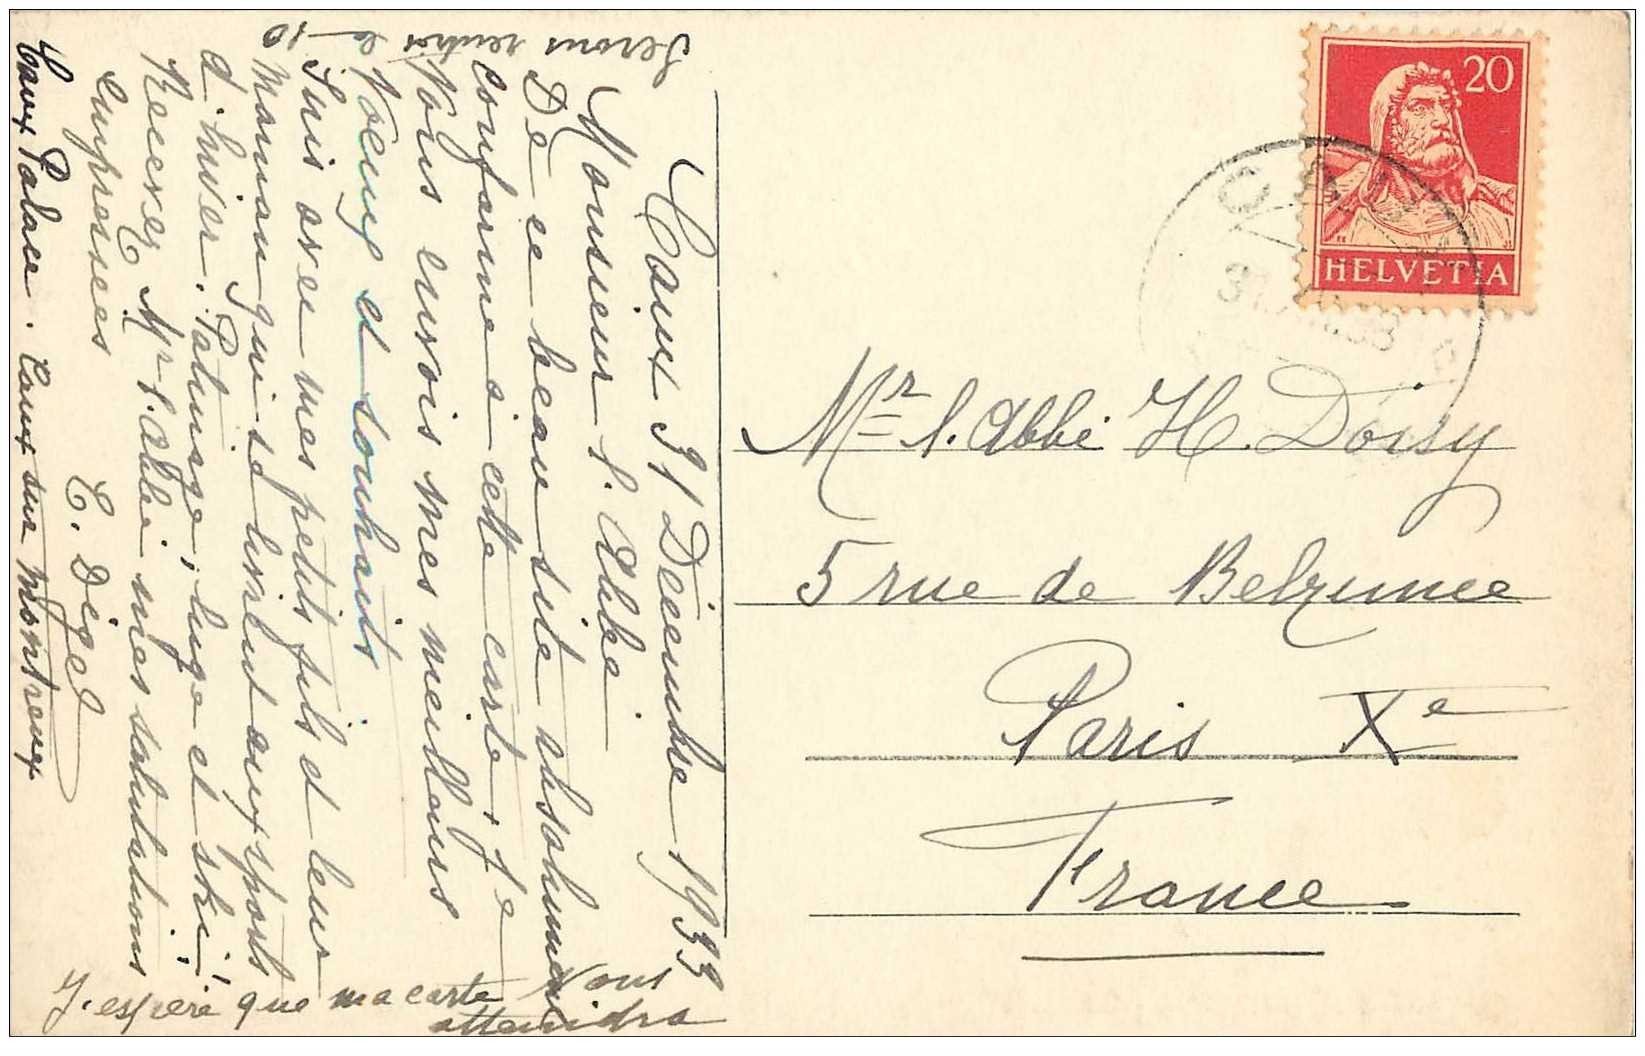 Caux 31 Décembre 1933
Monsieur l. Abbé
De ce beau site absolument
conforme à cette carte, je
Vous envois mes meilleurs
Voeux et souhaits
Suis avec mes petits fils et leur
Maman qui se livrent aux sports
d. hiver. Patinage, luge et ski!
Recevez Mr l. abbé mes salutations
Empressées
E. Digel
Caux Palace. Caux sur Montreux
J. espère que ma carte Vous
atteindra
Serons rentrés le
10
HELVETIA
20
31. XII. 33
Mr l. Abbé H. Doisy
5 rue de Belzunce
Paris Xe
France